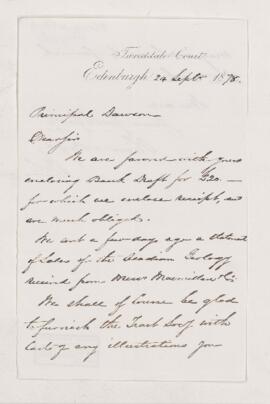 Tweeddale Court
Edinburgh 24 Septr 1878.
Principal Dawson
Dear Sir
We are favored with yours
enclosing Bank Draft for £20. —
for which we enclose receipt, and
are much obliged.
We sent a few days ago a statement
of Sales of the Acadian Geology
received from Messrs Macmillan & Co
We shall of course be glad
to furnish the Tract Socy with
of any illustrations you